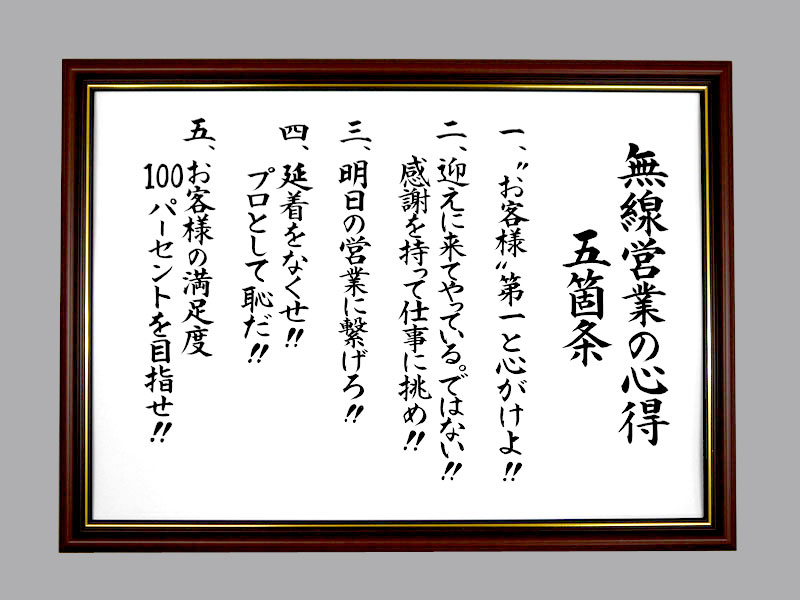 無線営業の心得
五箇条
一、〝お客様〟第一と心がけよ!!
二、迎えに来てやっている。ではない!!
感謝を持って仕事に挑め!!
三、明日の営業に繋げろ!!
四、延着をなくせ!!
プロとして恥だ!!
五、お客様の満足度
100パーセントを目指せ!!